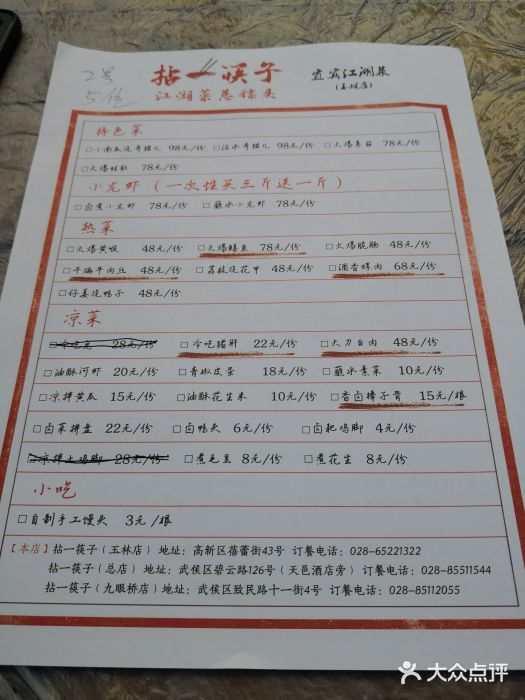 2号
5位
拈一筷子
宜宾江湖菜
江湖菜总镖头
(玉林店)
特色菜
□小南瓜烧奇猫儿 98元/份 □沾水奇猫儿 98元/份 □火爆鳝筋 78元/份
□火爆蛙肚 78元/份
小龙虾(一次性买三斤送一斤)
□卤煮小龙虾 78元/份 □蘸水小龙虾 78元/份
热菜
□火爆黄喉 48元/份 □火爆鳝鱼 78元/份 □火爆脆肠 48元/份
□干煸牛肉丘 48元/份 □荔枝烧花甲 48元/份 □酒香烤肉 68元/份
□仔姜烧鸭子 48元/份
凉菜
□冷吃兔 28元/份 □冷吃猪肝 22元/份 □大刀白肉 48元/份
□油酥河虾 20元/份 □青椒皮蛋 18元/份 □蘸水素菜 10元/份
□凉拌黄瓜 15元/份 □油酥花生米 10元/份 □香卤棒子骨 15元/根
□卤菜拼盘 22元/份 □卤鸭头 6元/份 □卤耙鸡脚 4元/份
□凉拌土鸡脚 28元/份 □煮毛豆 8元/份 □煮花生 8元/份
小吃
□自制手工馒头 3元/根
【本店】拈一筷子(玉林店) 地址:高新区蓓蕾街43号 订餐电话:028-65221322
拈一筷子(总店) 地址:武侯区碧云路126号(天邑酒店旁) 订餐电话:028-85511544
拈一筷子(九眼桥店) 地址:武侯区致民路十一街4号 订餐电话:028-85112055
大众点评